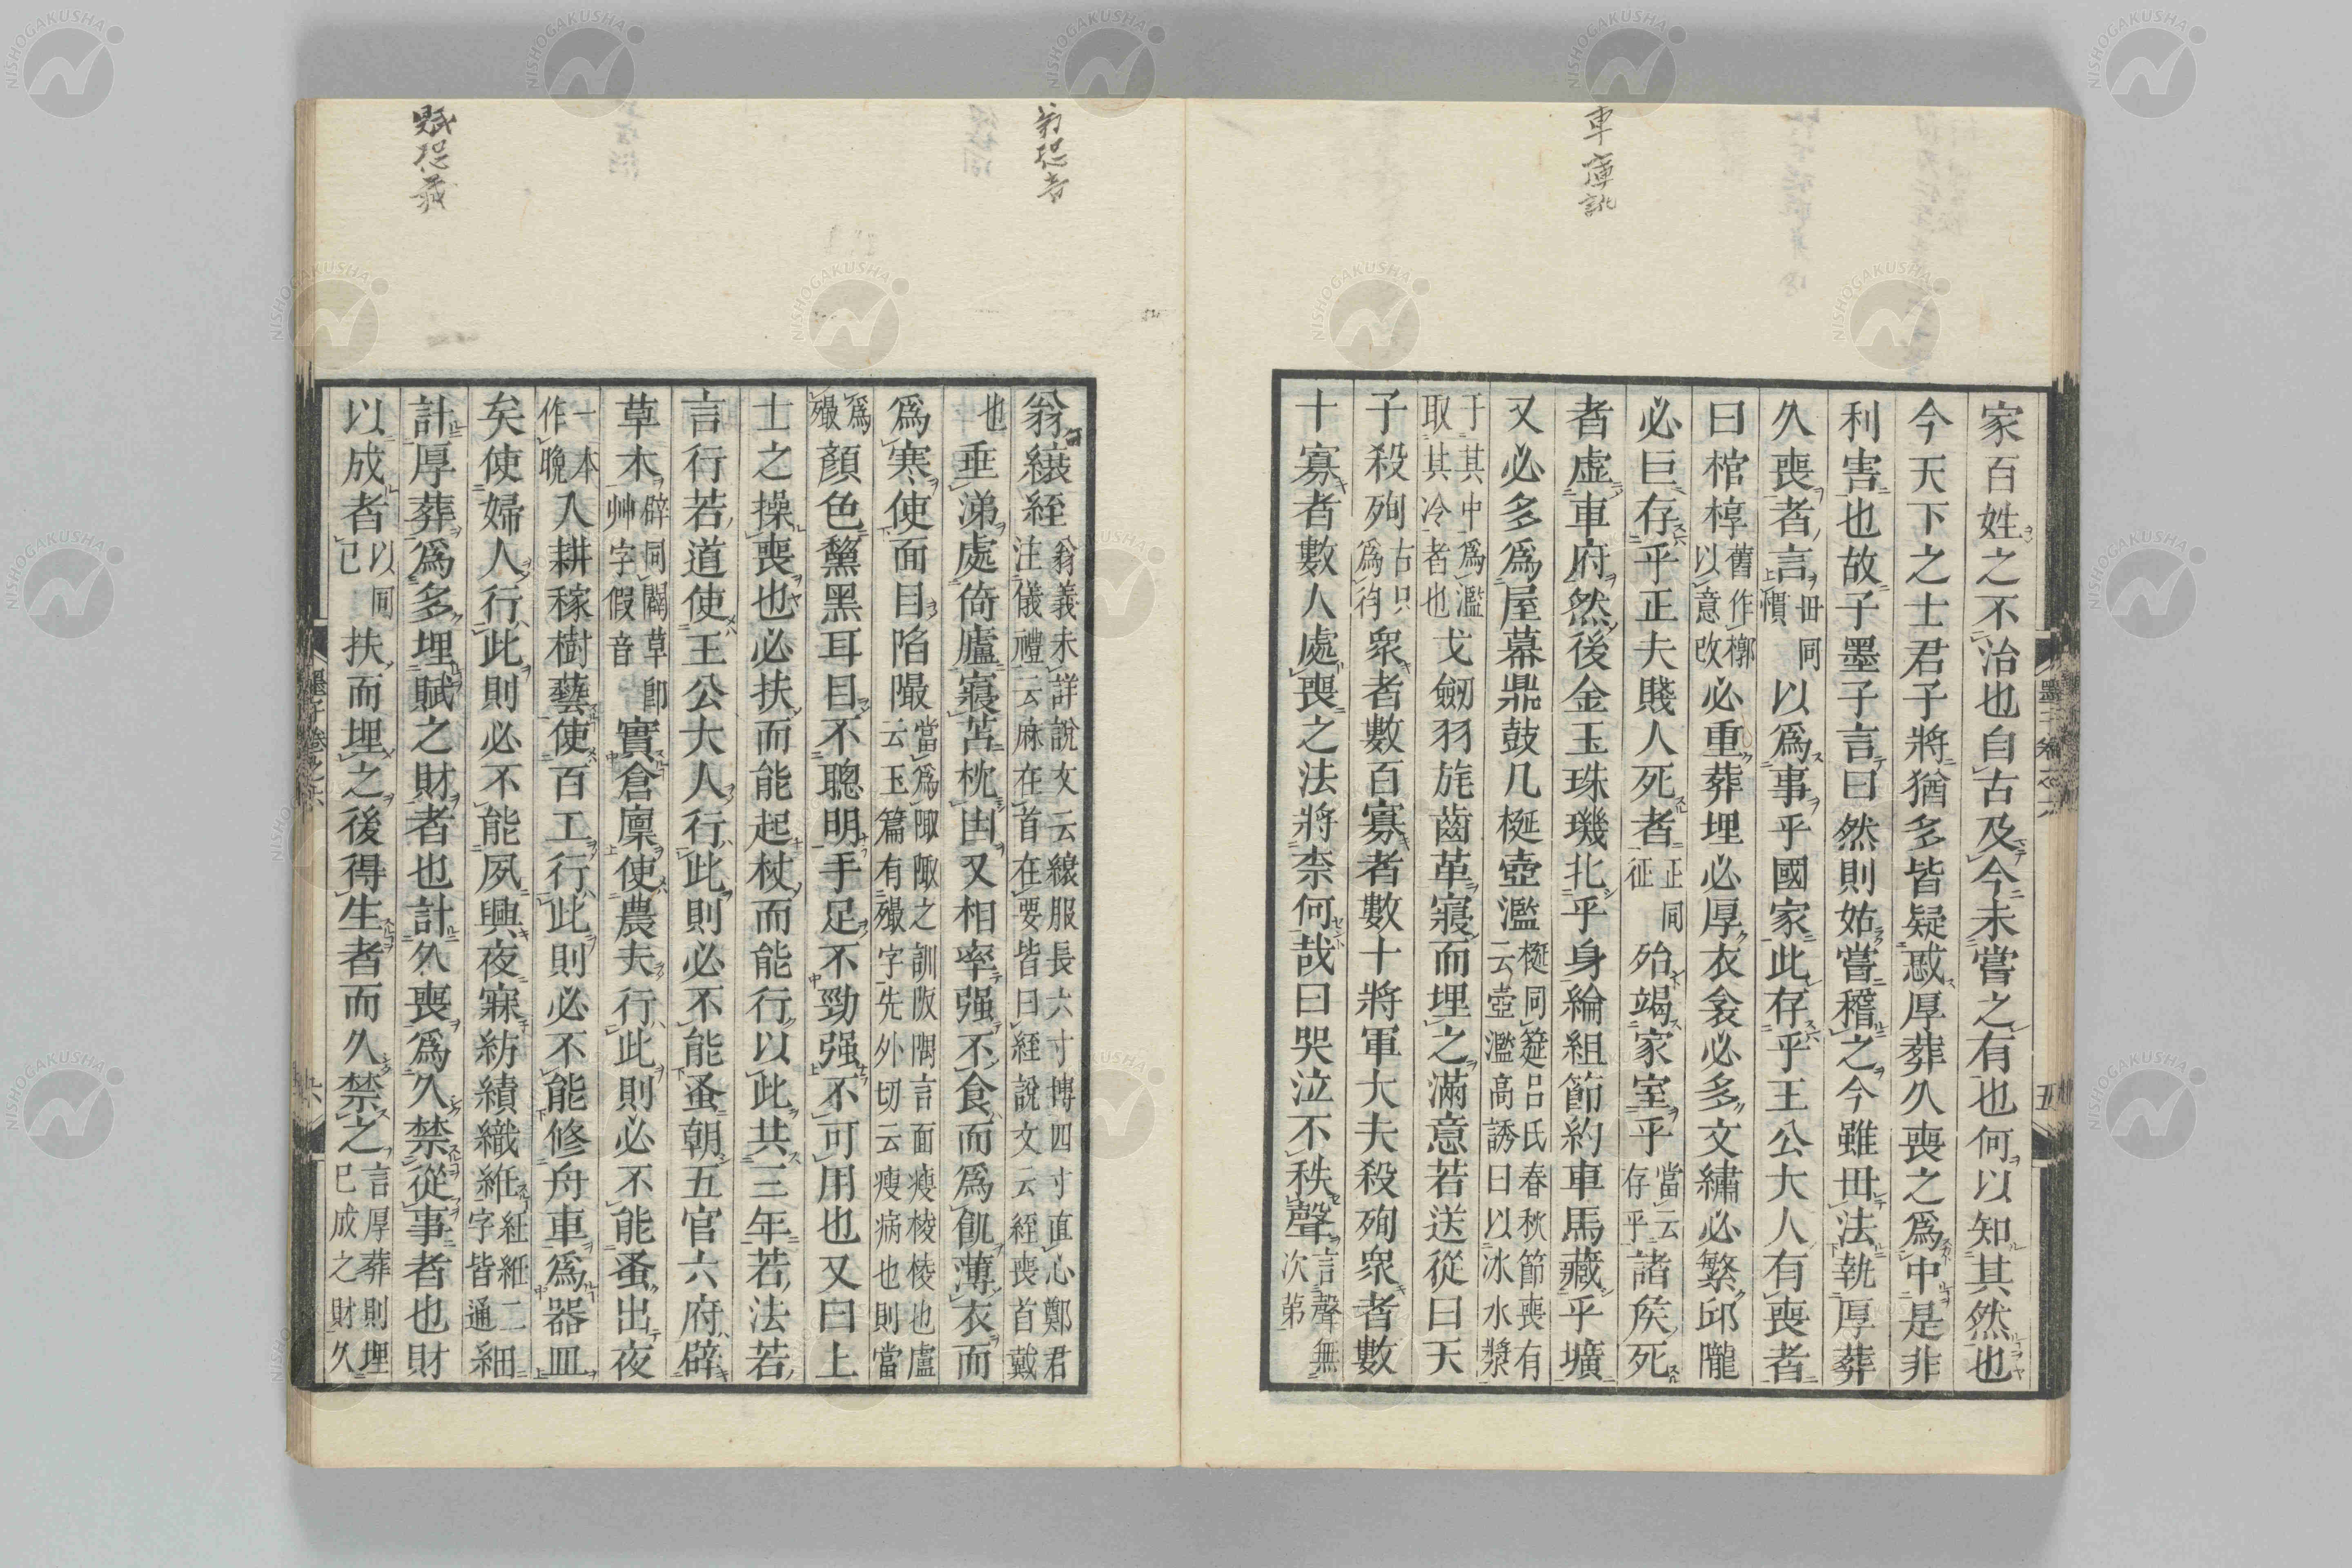 車庫訛
家百姓之不治也自古及今未嘗之有也何以知其然也
今天下之士君子將猶多皆疑惑厚葬久喪之爲中是非
利害也故子墨子言曰然則姑嘗稽之今雖毌法執厚葬
久喪者言毌同慣以爲事乎國家此存乎王公大人有喪者
曰棺椁舊作槨以意改必重葬埋必厚衣衾必多文繡必繁邱隴
必巨存乎正夫賤人死者正同征殆竭家室乎當云存乎諸矦死
者虛車府然後金玉珠璣北乎身綸組節約車馬藏乎壙
又必多爲屋幕鼎鼓几梴壺濫梴同筵呂氏春秋節喪有云壺濫高誘曰以冰水漿
于其中爲濫取其冷者也戈劒羽旄齒革寢而埋之滿意若送從曰天
子殺殉古只爲徇衆者數百寡者數十將軍大夫殺殉衆者數
十寡者數人處喪之法將柰何哉曰哭泣不秩聲言聲無次第
墨子卷之六
五
翁恐音
賦恐藏
翁縗絰翁義未詳說文云縗服長六寸博四寸直心鄭君注儀禮云麻在首在要皆曰絰說文云絰喪首戴
也垂涕處倚廬寢苫枕凷又相率强不食而爲飢薄衣而
爲寒使面目陷㒈當爲陬陬之訓阪隅言面瘦棱棱也盧云玉篇有殩字先外切云瘦病也則當
爲殩顏色黧黑耳目不聰明手足不勁强不可用也又曰上
士之操喪也必扶而能起杖而能行以此共三年若法若
言行若道使王公大人行此則必不能蚤朝五官六府辟
草木辟同闢草卽艸字假音實倉廩使農夫行此則必不能蚤出夜
一本作晩入耕稼樹藝使百工行此則必不能修舟車爲器皿
矣使婦人行此則必不能夙興夜寐紡績織絍紝絍二字皆通細
計厚葬爲多埋賦之財者也計久喪爲久禁從事者也財
以成者以同已扶而埋之後得生者而久禁之言厚葬則埋已成之財久
墨子卷之六
六